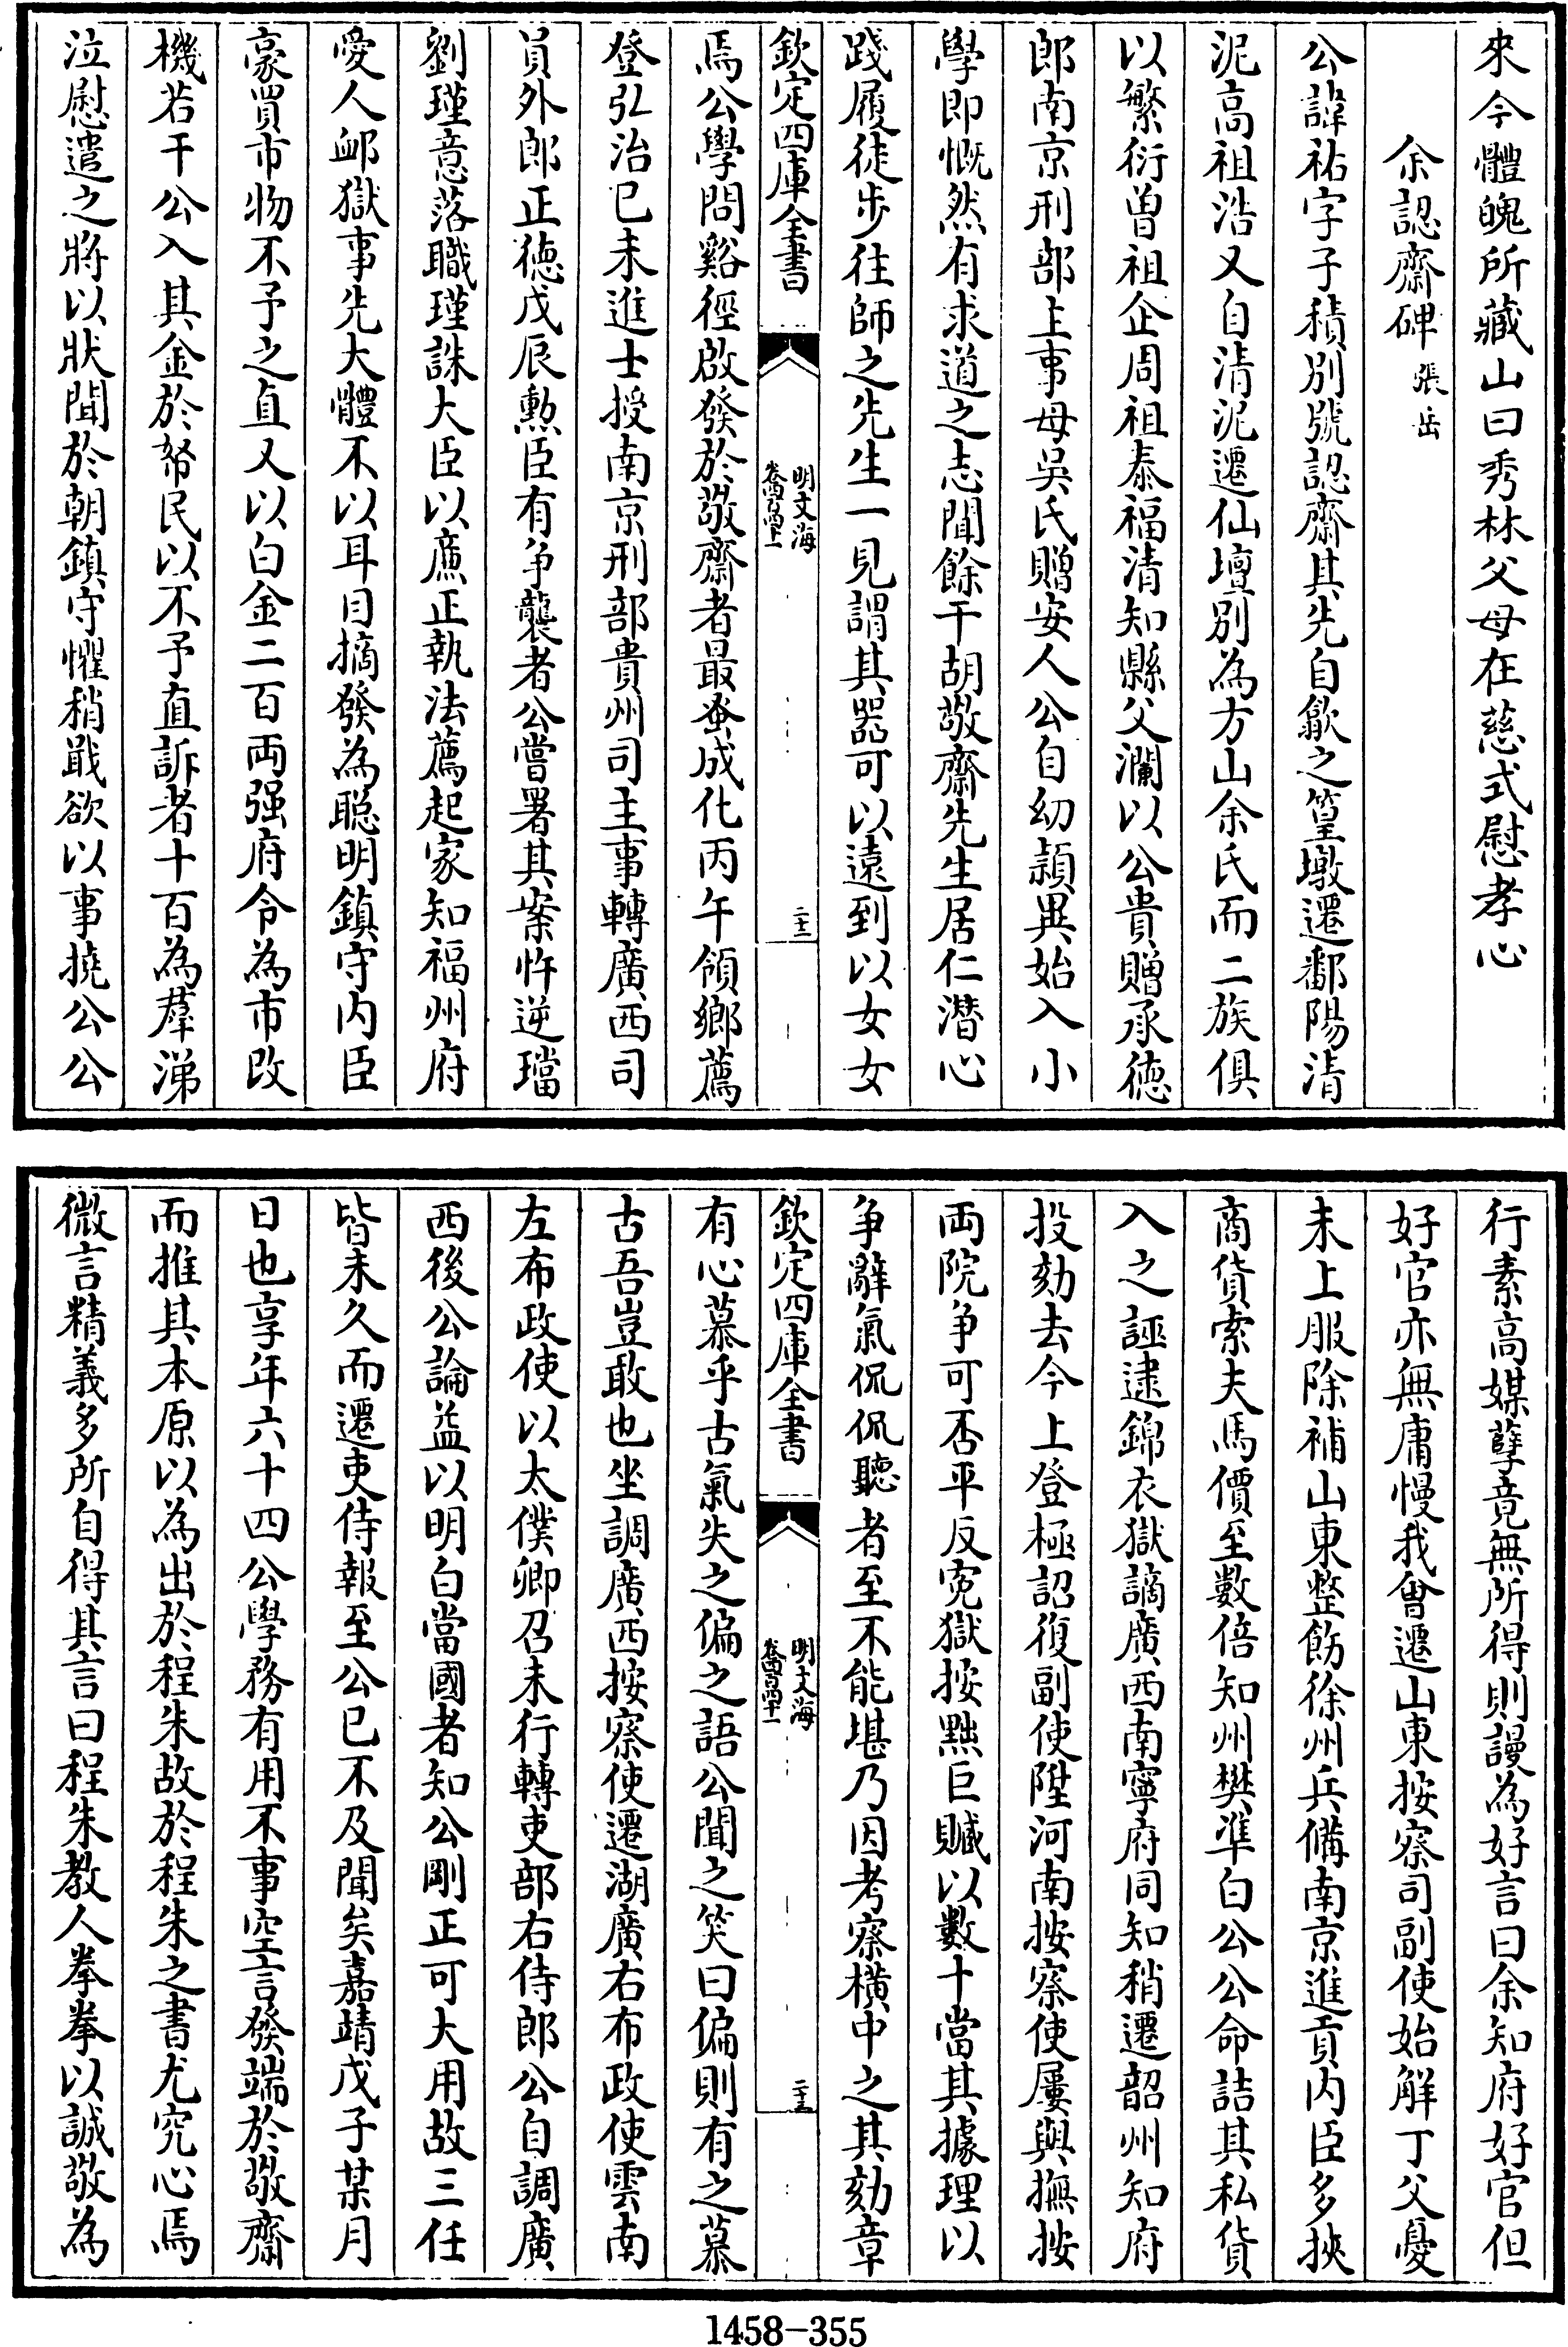 來今體魄所藏山曰秀林父母在慈式慰孝心
余認齋碑 張岳
公諱祐字子積別號認齋其先自歙之篁墩遷鄱陽清
泥高祖浩又自清泥遷仙壇別為方山余氏而二族俱
以繁衍曾祖企周祖泰福清知縣父瀾以公貴贈承德
郎南京刑部主事母吳氏贈安人公自幼頴異始入小
學即慨然有求道之志聞餘干胡敬齋先生居仁潛心
踐履徒步往師之先生一見謂其器可以遠到以女女
欽定四庫全書
明文海
卷四百四十一
二十二
焉公學問谿徑啟發於敬齋者最蚤成化丙午領鄉薦
登弘治已未進士授南京刑部貴州司主事轉廣西司
員外郎正德戊辰勲臣有爭襲者公嘗署其案忤逆璫
劉瑾意落職瑾誅大臣以㢘正執法薦起家知福州府
愛人䘏獄事先大體不以耳目摘發為聰明鎮守內臣
豪買市物不予之直又以白金二百両强府令為市改
機若干公入其金於帑民以不予直訴者十百為羣涕
泣慰遣之將以狀聞於朝鎮守懼稍戢欲以事撓公公
行素高媒孽竟無所得則謾為好言曰余知府好官但
好官亦無庸慢我會遷山東按察司副使始解丁父憂
未上服除補山東整飭徐州兵備南京進貢內臣多挾
商貨索夫馬價至數倍知州樊準白公公命詰其私貨
入之誣逮錦衣獄謫廣西南寧府同知稍遷韶州知府
投劾去今上登極詔復副使陞河南按察使屢與撫按
両院爭可否平反寃獄按黜巨贓以數十當其據理以
爭辭氣侃侃聽者至不能堪乃因考察橫中之其劾章
欽定四庫全書
明文海
卷四百四十一
二十三
有心慕乎古氣失之偏之語公聞之笑曰偏則有之慕
古吾豈敢也坐調廣西按察使遷湖廣右布政使雲南
左布政使以太僕卿召未行轉吏部右侍郎公自調廣
西後公論益以明白當國者知公剛正可大用故三任
皆未久而遷吏侍報至公已不及聞矣嘉靖戊子某月
日也享年六十四公學務有用不事空言發端於敬齋
而推其本原以為出於程朱故於程朱之書尤究心焉
微言精義多所自得其言曰程朱教人拳拳以誠敬為
1458-355